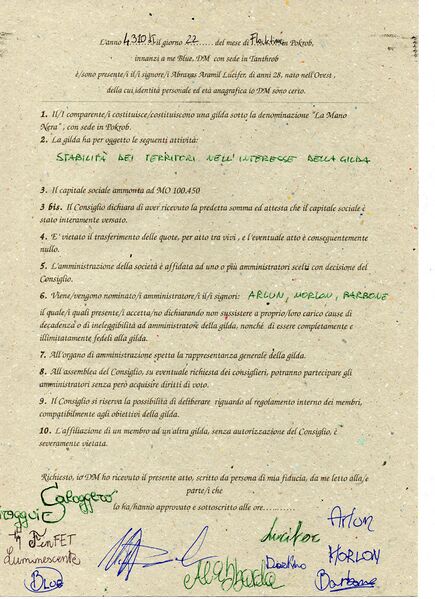 L'anno 4310 il giorno 22 ........ del mese di in Pokrob,
innanzi a me Blue, DM con sede in Tanthrob
è/sono presente/i il/i signore/i Abraxas Aramil Lucifer, di anni 28, nato nell'Ovest,
della cui identità personale ed età anagrafica io DM sono certo.
1. Il/I comparente/i costituisce/costituiscono una gilda sotto la denominazione "La Mano
Nera", con sede in Pokrob.
2. La gilda ha per oggetto le seguenti attività:
STABILITÀ DEI TERRITORI NELL'INTERESSE DELLA GILDA
3. Il capitale sociale ammonta ad MO 100.450
3 bis. Il Consiglio dichiara di aver ricevuto la predetta somma ed attesta che il capitale sociale è
stato interamente versato.
4. E' vietato il trasferimento delle quote, per atto tra vivi, e l'eventuale atto è conseguentemente
nullo.
5. L'amministrazione della società è affidata ad uno o più amministratori scelti con decisione del
Consiglio.
6. Viene/vengono nominato/i amministratore/i il/i signori: ARLON, MORLON, BARBONE
il quale/i quali presente/i accetta/no dichiarando non sussistere a proprio/loro carico cause di
decadenza o di ineleggibilità ad amministratore della gilda, nonchè di essere completamente e
illimitatamente fedeli alla gilda.
7. All'organo di amministrazione spetta la rappresentanza generale della gilda.
8. All'assemblea del Consiglio, su eventuale richiesta dei consiglieri, potranno partecipare gli
amministratori senza però acquisire diritti di voto.
9. Il Consiglio si riserva la possibilità di deliberare riguardo al regolamento interno dei membri,
compatibilmente agli obiettivi della gilda.
10. L'affiliazione di un membro ad un'altra gilda, senza autorizzazione del Consiglio, è
severamente vietata.
Richiesto, io DM ho ricevuto il presente atto, scritto da persona di mia fiducia, da me letto alla/e
parte/i che
lo ha/hanno approvato e sottoscritto alle ore..........
Caloggero
Arlon
Lucifer
FinFET
Luminescente
MORLON
Blue
Barbone